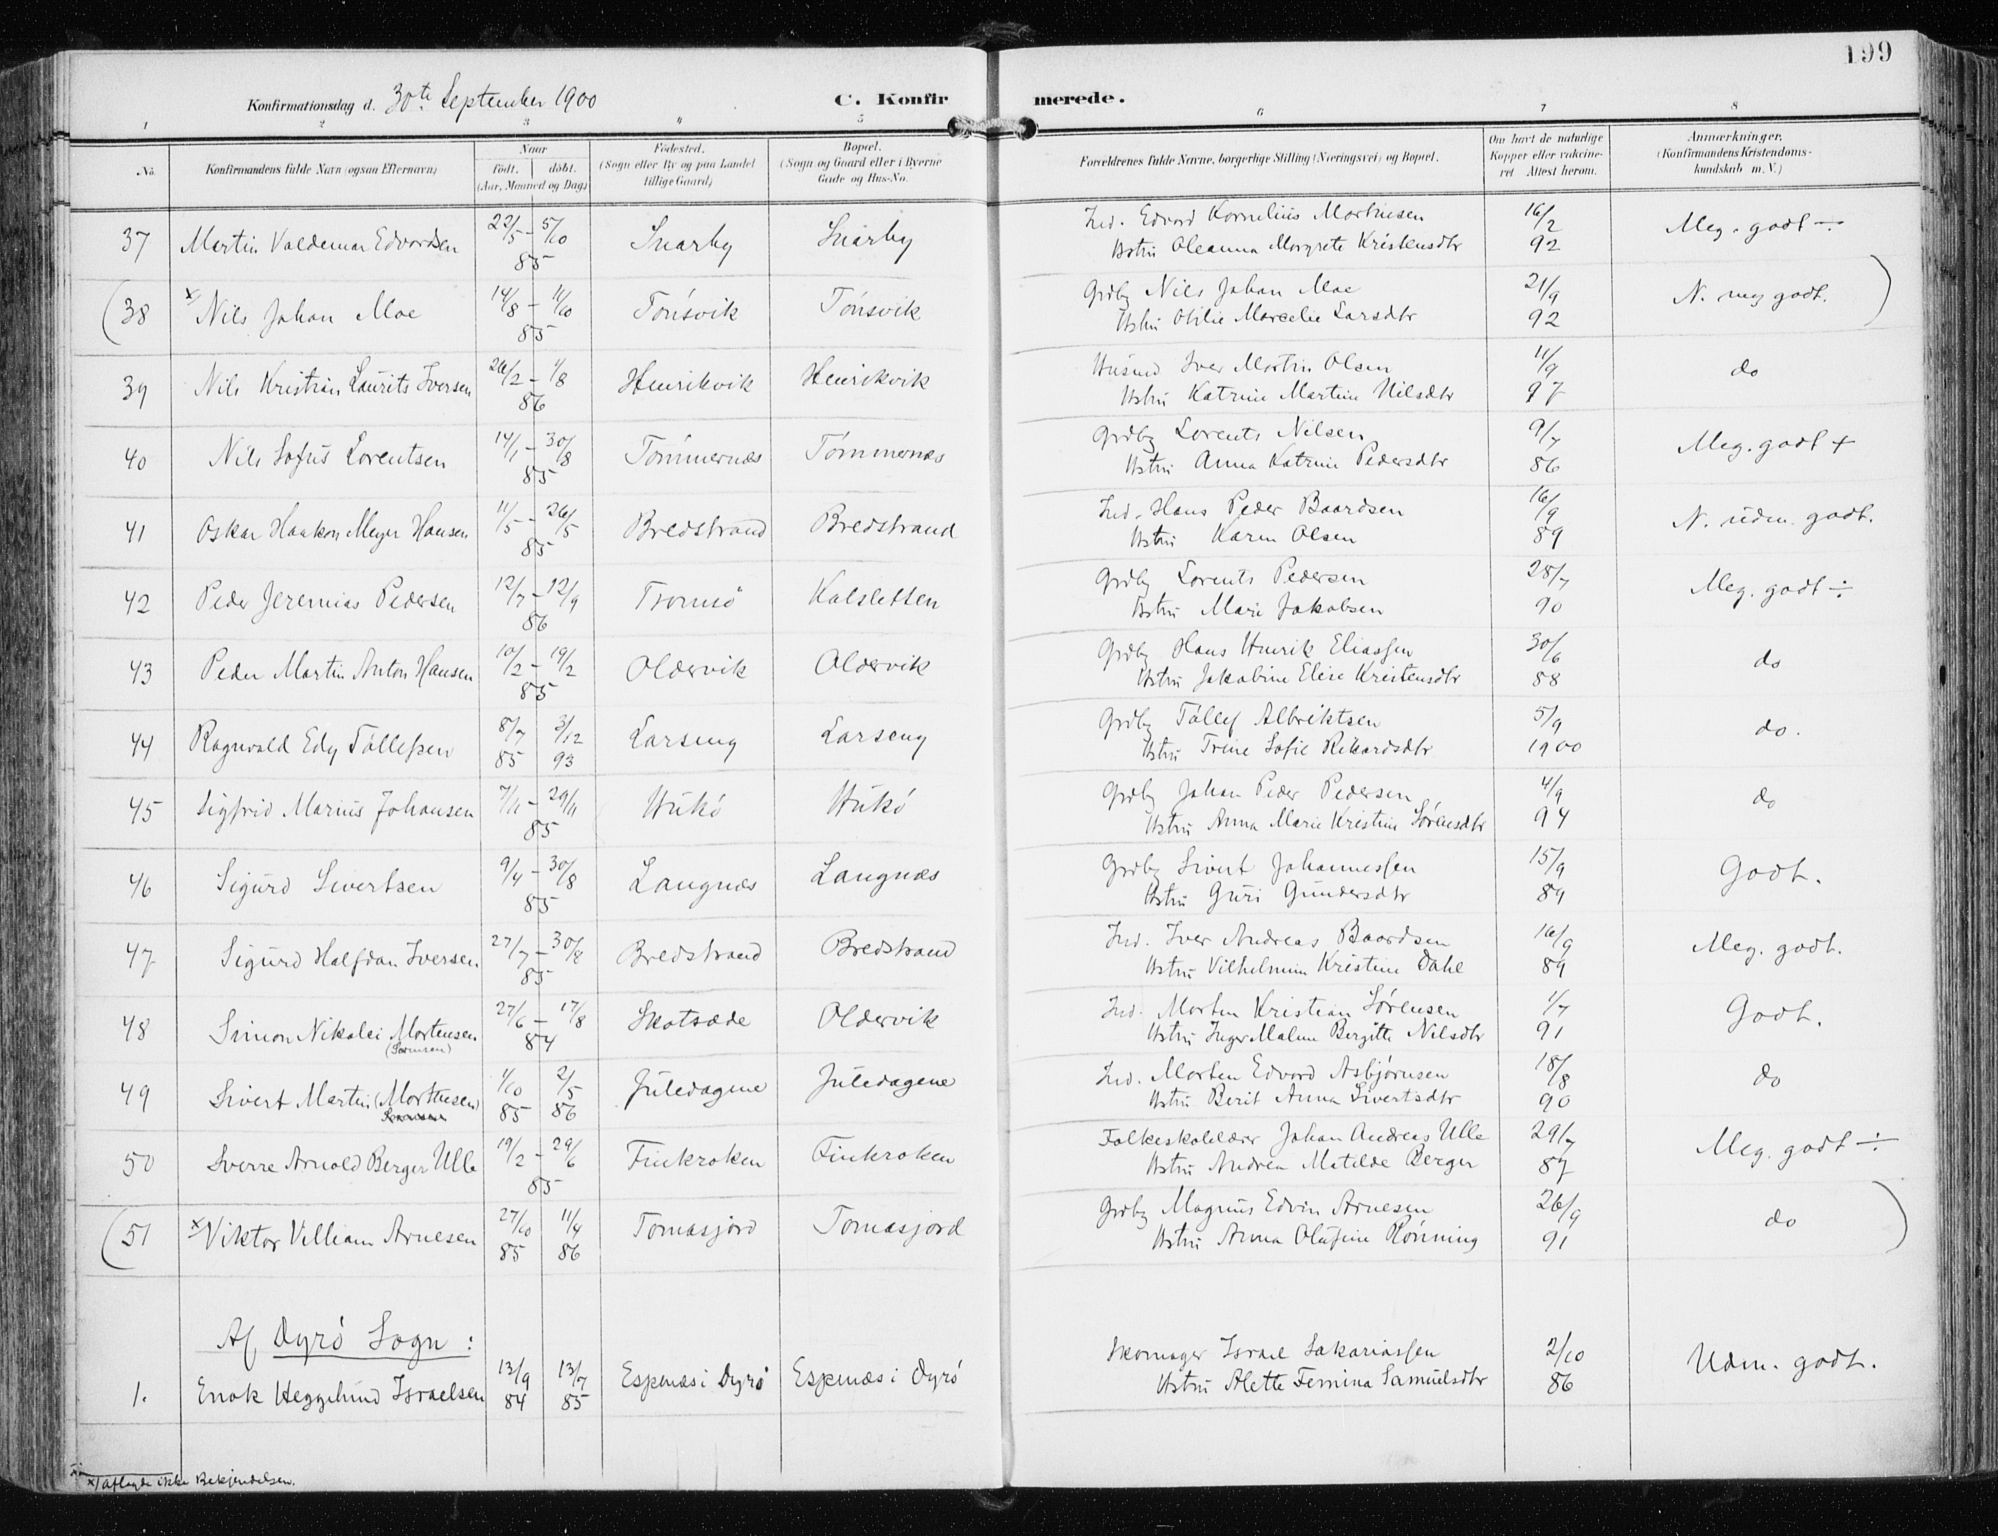 199
Konfirmationsdag d. 30te September 1900 C. Konfirmerede.
1 2 3 4 5 6 7 8
No. Konfirmandens fulde Navn (ogsaa Efternavn) Naar født. døbt. (Aar, Maaned og Dag) Fødested. (Sogn eller By og paa Landet tillige Gaard) Bopæl. (Sogn og Gaard eller i Byerne Gade og Hus-No. Forældrenes fulde Navne, borgerlige Stilling (Næringsvei) og Bopæl. Om havt de naturlige Kopper eller vaccineret Attest herom. Anmærkninger. (Konfirmandens Kristendomskundskab m. V.)
37 Martin Valdemar Edvardsen 22/5 – 5/10 85 Snarby Snarby Ind. Edvard Kornelius Mortinsen Hstru Oleanna Margrete Kristensdtr 16/2 92 Meg. godt ÷
(38 x/ Nils Johan Moe 14/8 – 11/10 85 Tønsvik Tønsvik Grdby Nils Johan Moe Hstru Otilie Marcelie Larsdtr 21/9 92 N. meg godt. )
39 Nils Kristian Laurits Iversen 26/2 – 1/8 86 Henrikvik Henrikvik Husmd Iver Martin Olsen Hstru Katrine Martine Nilsdtr 11/9 97 do
40 Nils Sofus Lorentsen 14/1 – 30/8 85 Tømmernæs Tømmernæs Grdby Lorents Nilsen Hstru Anna Katrine Pedersdtr 9/7 86 Meg. godt +
41 Oskar Haakon Meyer Hansen 11/5 – 26/5 85 Bredstrand Bredstrand Ind. Hans Peder Baardsen Hstru Karen Olsen 16/9 89 N. udm. godt.
42 Peder Jeremias Pedersen 12/7 – 12/9 86 Tromsø Kalsletten Grdby Lorents Pedersen Hstru Marie Jakobsen 28/7 90 Meg. godt ÷
43 Peder Martin Anton Hansen 10/2 – 19/2 85 Oldervik Oldervik Grdby Hans Henrik Eliassen Hstru Jakobine Elise Kristensdtr 30/6 88 do
44 Ragnvald Edy Tøllefsen 8/7 85 3/12 93 Larseng Larseng Grdby Tøllef Albriktsen Hstru Trine Sofie Rikardsdtr 5/9 1900 do.
45 Sigfrid Marius Johansen 7/11 – 29/11 85 Stukø Stukø Grdby Johan Peder Pedersen Hstru Anna Marie Kristine Sørensdtr 4/9 94 do
46 Sigurd Sivertsen 9/4 – 30/8 85 Langnæs Langnæs Grdby Sivert Johannessen Hstru Guri Gundersdtr 15/9 89 Godt.
47 Sigurd Halfdan Iversen 27/7 – 30/8 85 Bredstrand Bredstrand Ind. Iver Andreas Baardsen Hstru Vilhelmine Kristine Dahl 16/9 89 Meg. godt.
48 Simon Nikolai Mortensen (Sørensen) 27/6 – 17/8 84 Skotsæde Oldervik Ind. Morten Kristian Sørensen Hstru Inger Malene Bergitte Nilsdtr 1/7 91 Godt.
49 Sivert Martin (Mortensen) 1/10 85 2/5 86 Juledagene Juledagene Ind. Morten Edvard Asbjørnsen Hstru Berit Anna Sivertsdtr 18/8 90 do
50 Sverre Arnold Berger Ulle 19/2 – 29/6 85 Finkroken Finkroken Folkeskolelærer Johan Andreas Ulle Hstru Andrea Matilde Berger 29/7 87 Meg. godt ÷
(51 x/ Viktor Villiam Arnesen 27/10 85 11/4 86 Tomasjord Tomasjord Grdby Magnus Edvin Arnesen Hstru Anna Olufine Rønning 26/9 91 do )
Af Dyrø Sogn :
1. Enok Heggelund Israelsen 13/9 84 13/7 85 Espenæs i Dyrø Espenæs i Dyrø Skomager Israel Sakariassen Hstru Alette Femina Samuelsdtr 2/10 86 Udm. godt.
x/ aflagde ikke Bekjendelsen.